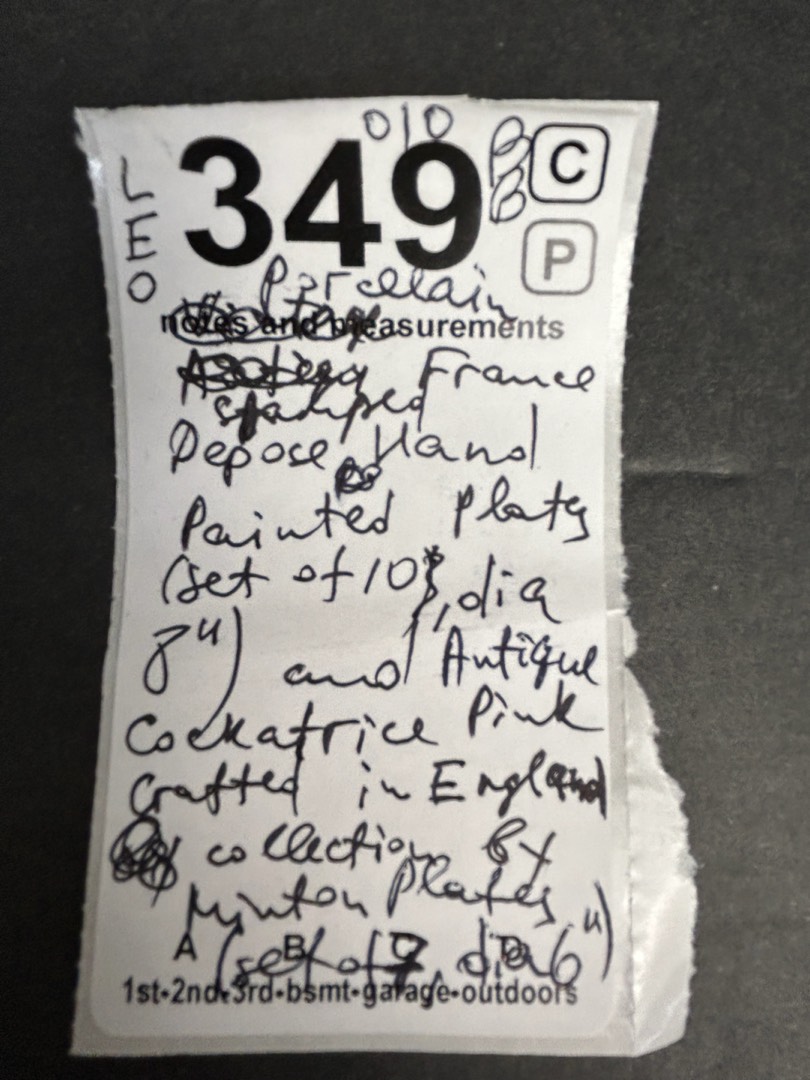 010
LEO 349 C
P
Porcelain
notes and measurements
France
stamped
Depose Hand
Painted Plates
(set of 10, dia
8") and Antique
Cockatrice Pink
Crafted in England
collection by
Minton Plates
A B C D
(set of 7, dia 6")
1st-2nd-3rd-bsmt-garage-outdoors